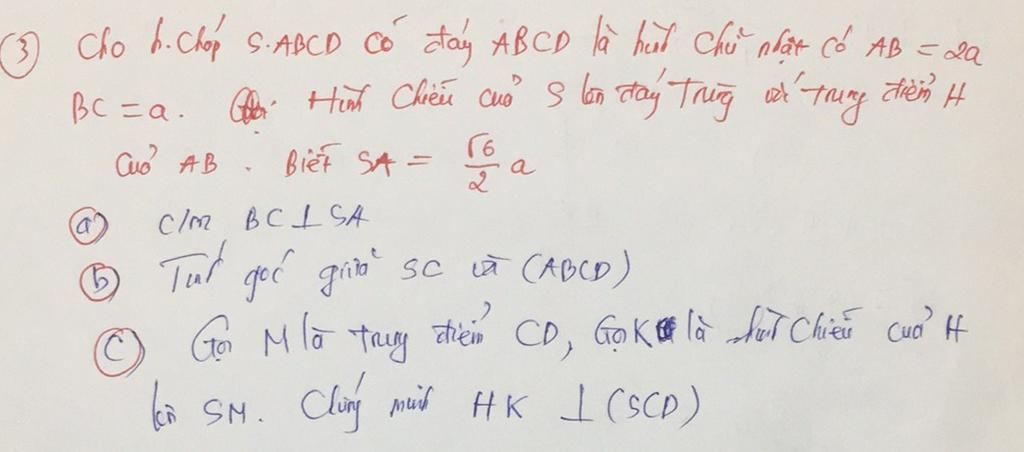 ③ Cho h.chóp S.ABCD có đáy ABCD là hình chữ nhật có AB = 2a
BC = a. Hình chiếu của S lên đáy trùng với trung điểm H
của AB. Biết SA = √6/2 a
ⓐ C/m BC ⊥ SA
ⓑ Tính góc giữa SC và (ABCD)
ⓒ Gọi M là trung điểm CD, Gọi K là hình chiếu của H
lên SM. Chứng minh HK ⊥ (SCD)